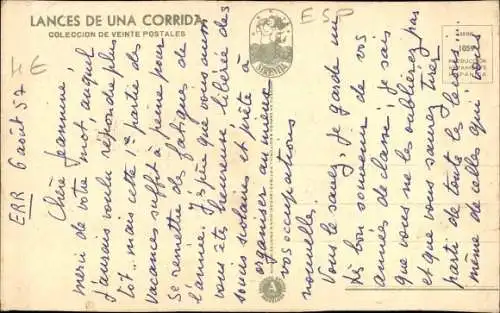 LANCES DE UNA CORRIDA
COLECCION DE VEINTE POSTALES
ESP
ERR 6 août 57
Chère Jeannine,
merci de votre mot, auquel
j'aurais voulu répondre plus
tôt... mais cette 1e partie des
vacances suffit à peine pour
se remettre des fatigues de
l'année. J'espère que vous aussi
vous êtes heureuse, libérée des
soucis scolaires et prête à
organiser au mieux
vos occupations
nouvelles.
Vous le savez, je garde un
très bon souvenir de vos
années de classe; je sais
que vous ne les oublierez pas
et que vous saurez tirer
parti de toutes les leçons:
même de celles qui vous